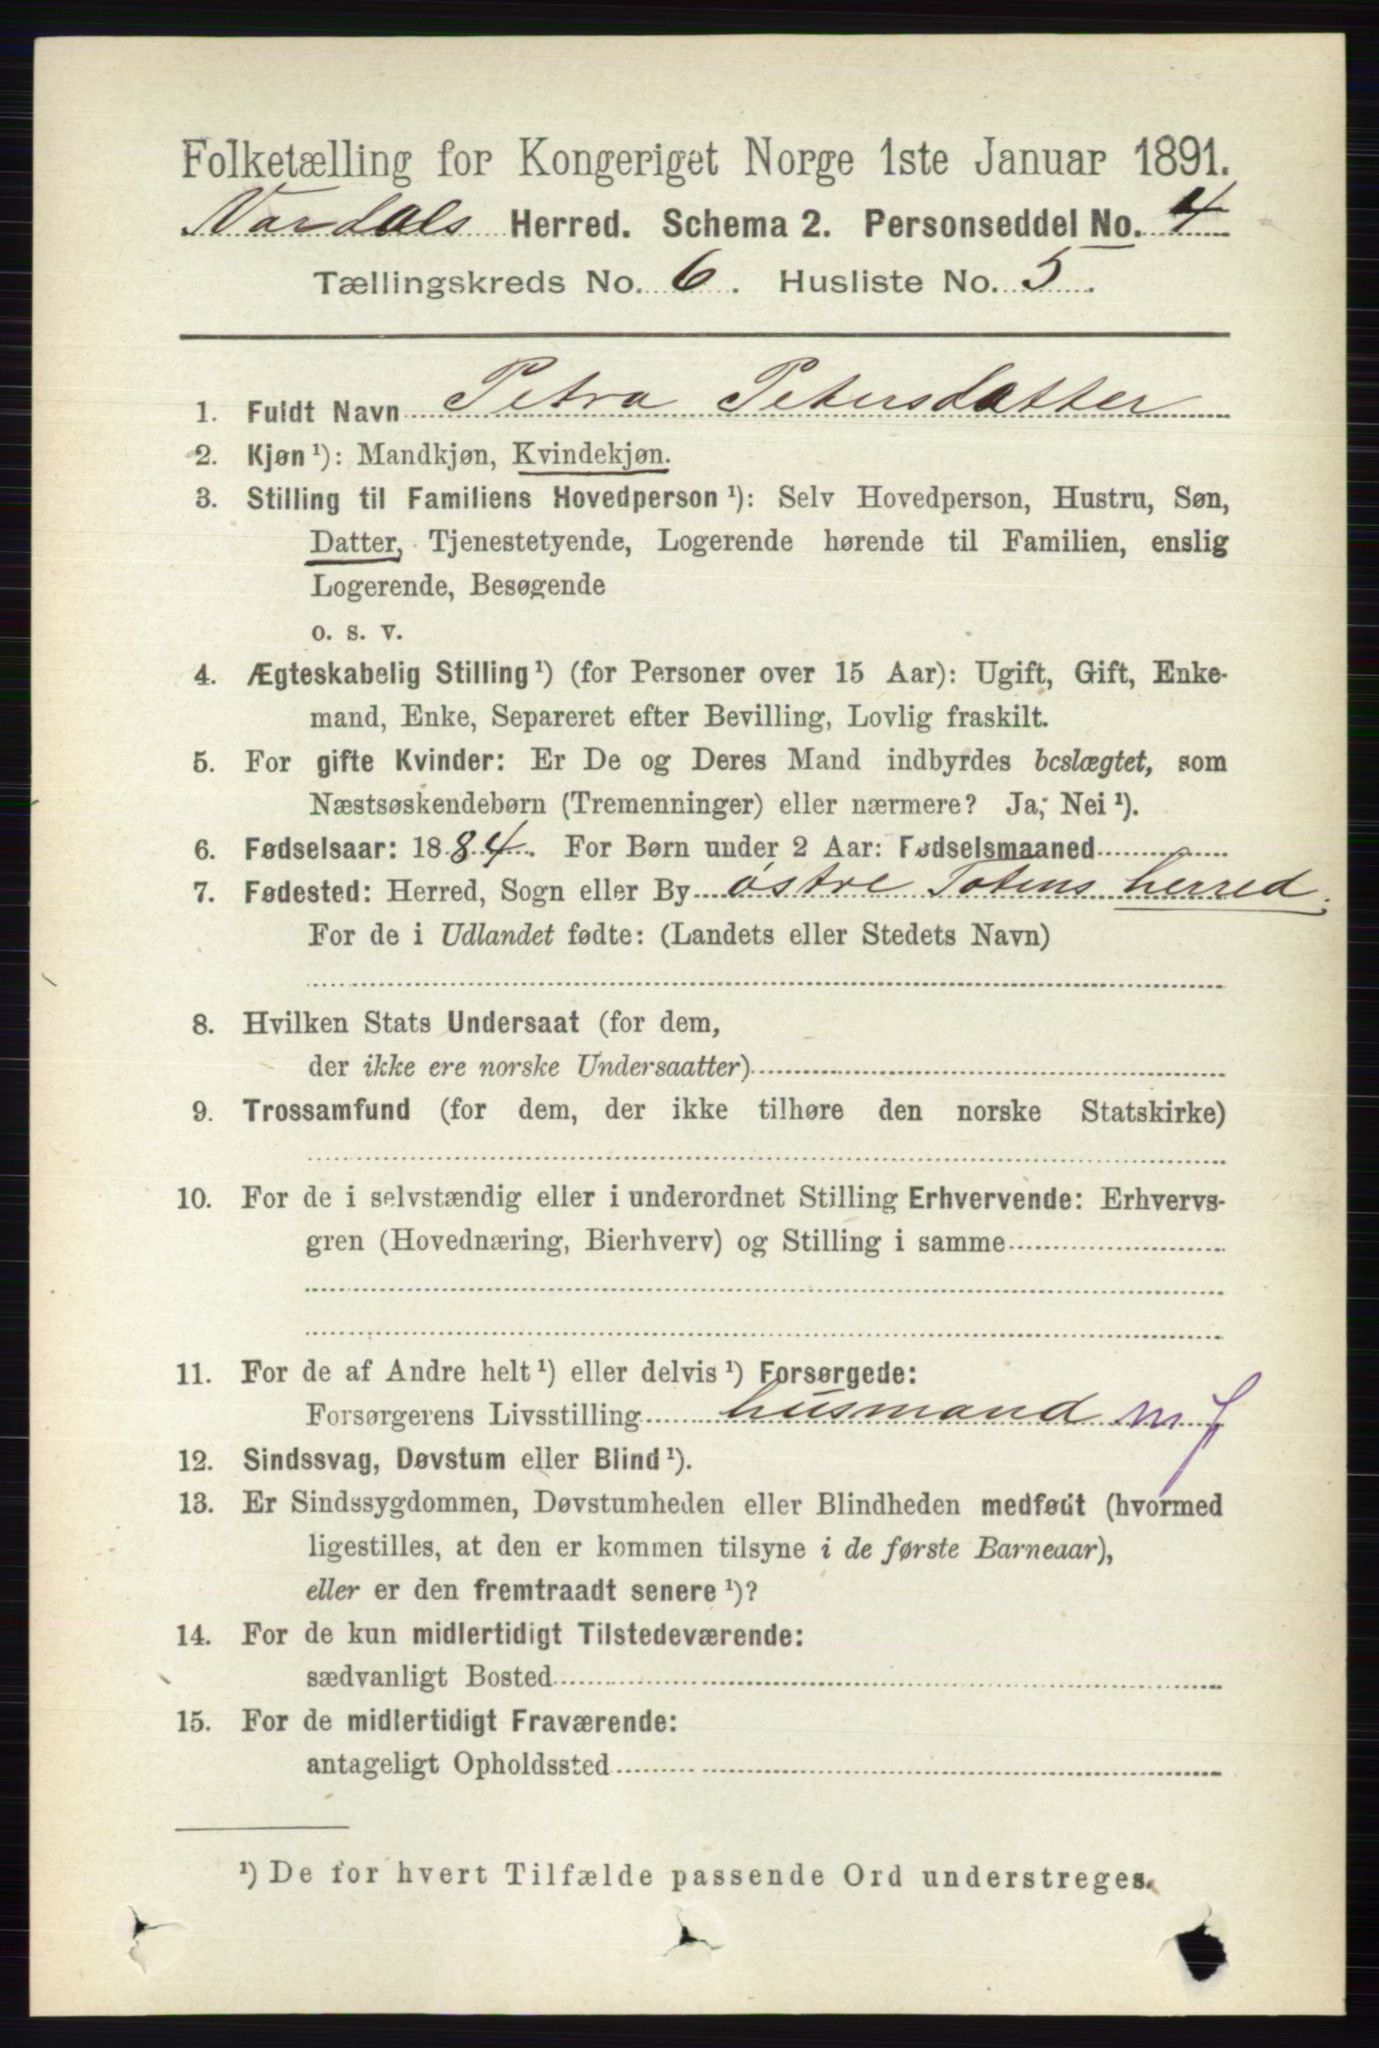 Folketælling for Kongeriget Norge 1ste Januar 1891.
Vardals Herred. Schema 2. Personseddel No. 4
Tællingskreds No. 6. Husliste No. 5.
1. Fuldt Navn Petra Petersdatter
2. Kjøn ¹): Mandkjøn, Kvindekjøn.
3. Stilling til Familiens Hovedperson ¹): Selv Hovedperson, Hustru, Søn,
Datter, Tjenestetyende, Logerende hørende til Familien, enslig
Logerende, Besøgende
o. s. v.
4. Ægteskabelig Stilling ¹) (for Personer over 15 Aar): Ugift, Gift, Enke-
mand, Enke, Separeret efter Bevilling, Lovlig fraskilt.
5. For gifte Kvinder: Er De og Deres Mand indbyrdes beslægtet, som
Næstsøskendebørn (Tremenninger) eller nærmere? Ja, Nei ¹).
6. Fødselsaar: 1884. For Børn under 2 Aar: Fødselsmaaned
7. Fødested: Herred, Sogn eller By østre Totens herred.
For de i Udlandet fødte: (Landets eller Stedets Navn)
8. Hvilken Stats Undersaat (for dem,
der ikke ere norske Undersaatter)
9. Trossamfund (for dem, der ikke tilhøre den norske Statskirke)
10. For de i selvstændig eller i underordnet Stilling Erhvervende: Erhvervs-
gren (Hovednæring, Bierhverv) og Stilling i samme
11. For de af Andre helt ¹) eller delvis ¹) Forsørgede:
Forsørgerens Livsstilling husmand m j
12. Sindssvag, Døvstum eller Blind ¹).
13. Er Sindssygdommen, Døvstumheden eller Blindheden medfødt (hvormed
ligestilles, at den er kommen tilsyne i de første Barneaar),
eller er den fremtraadt senere ¹)?
14. For de kun midlertidigt Tilstedeværende:
sædvanligt Bosted
15. For de midlertidigt Fraværende:
antageligt Opholdssted
¹) De for hvert Tilfælde passende Ord understreges.